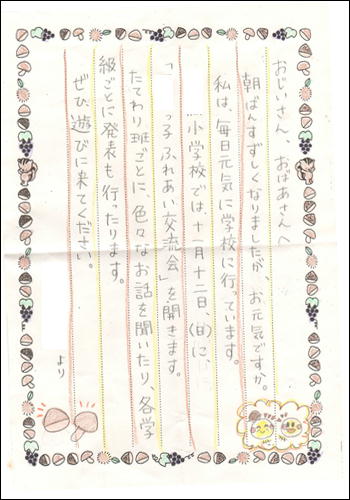 おじいさん、おばあさんへ
朝ばんすずしくなりましたが、お元気ですか。
私は、毎日元気に学校に行っています。
小学校では、十一月十二日、(日)に、
「 っ子ふれあい交流会」を開きます。
たてわり班ごとに、色々なお話を聞いたり、各学
級ごとに発表も行ったります。
ぜひ、遊びに来てください。
より